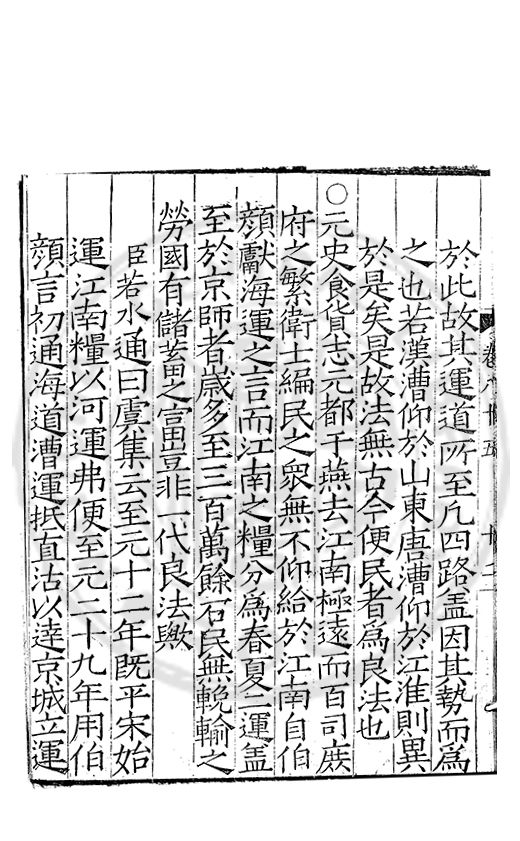 於此故其運道所至凡四路盖因其勢而為
之也若漢漕仰於山東唐漕仰於江淮則異
於是矣是故法無古今便民者為良法也
○元史食貨志元都于燕去江南極遠而百司庻
府之繁衛士編民之衆無不仰給於江南自伯
顔獻海運之言而江南之糧分為春夏二運盖
至於京師者歲多至三百萬餘石民無輓輸之
勞國有儲蓄之富豈非一代良法歟
臣若水通曰虞集云至元十二年既平宋始
運江南糧以河運弗便至元二十九年用伯
顔言初通海道漕運抵直沽以逹京城立運